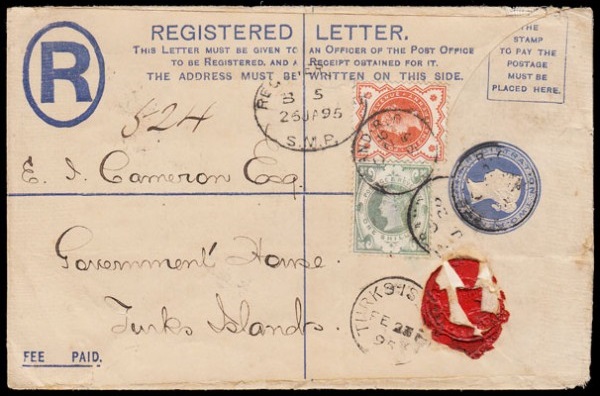 REGISTERED LETTER.
THIS LETTER MUST BE GIVEN TO AN OFFICER OF THE POST OFFICE
TO BE REGISTERED, AND A RECEIPT OBTAINED FOR IT.
THE ADDRESS MUST BE WRITTEN ON THIS SIDE.
THE
STAMP
TO PAY THE
POSTAGE
MUST BE
PLACED HERE.
R
524
B S
26 JA 95
S.M.P.
E. J. Cameron Esq
Government House
Turks Islands.
TURKS IS
FE 23
95
FEE PAID.